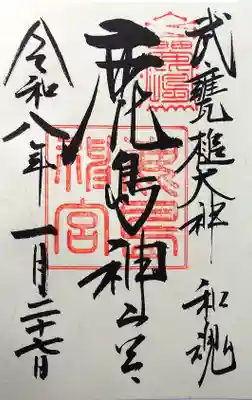 武甕槌大神 和魂
鹿島神宮
令和八年一月二十七日
鹿島
神宮